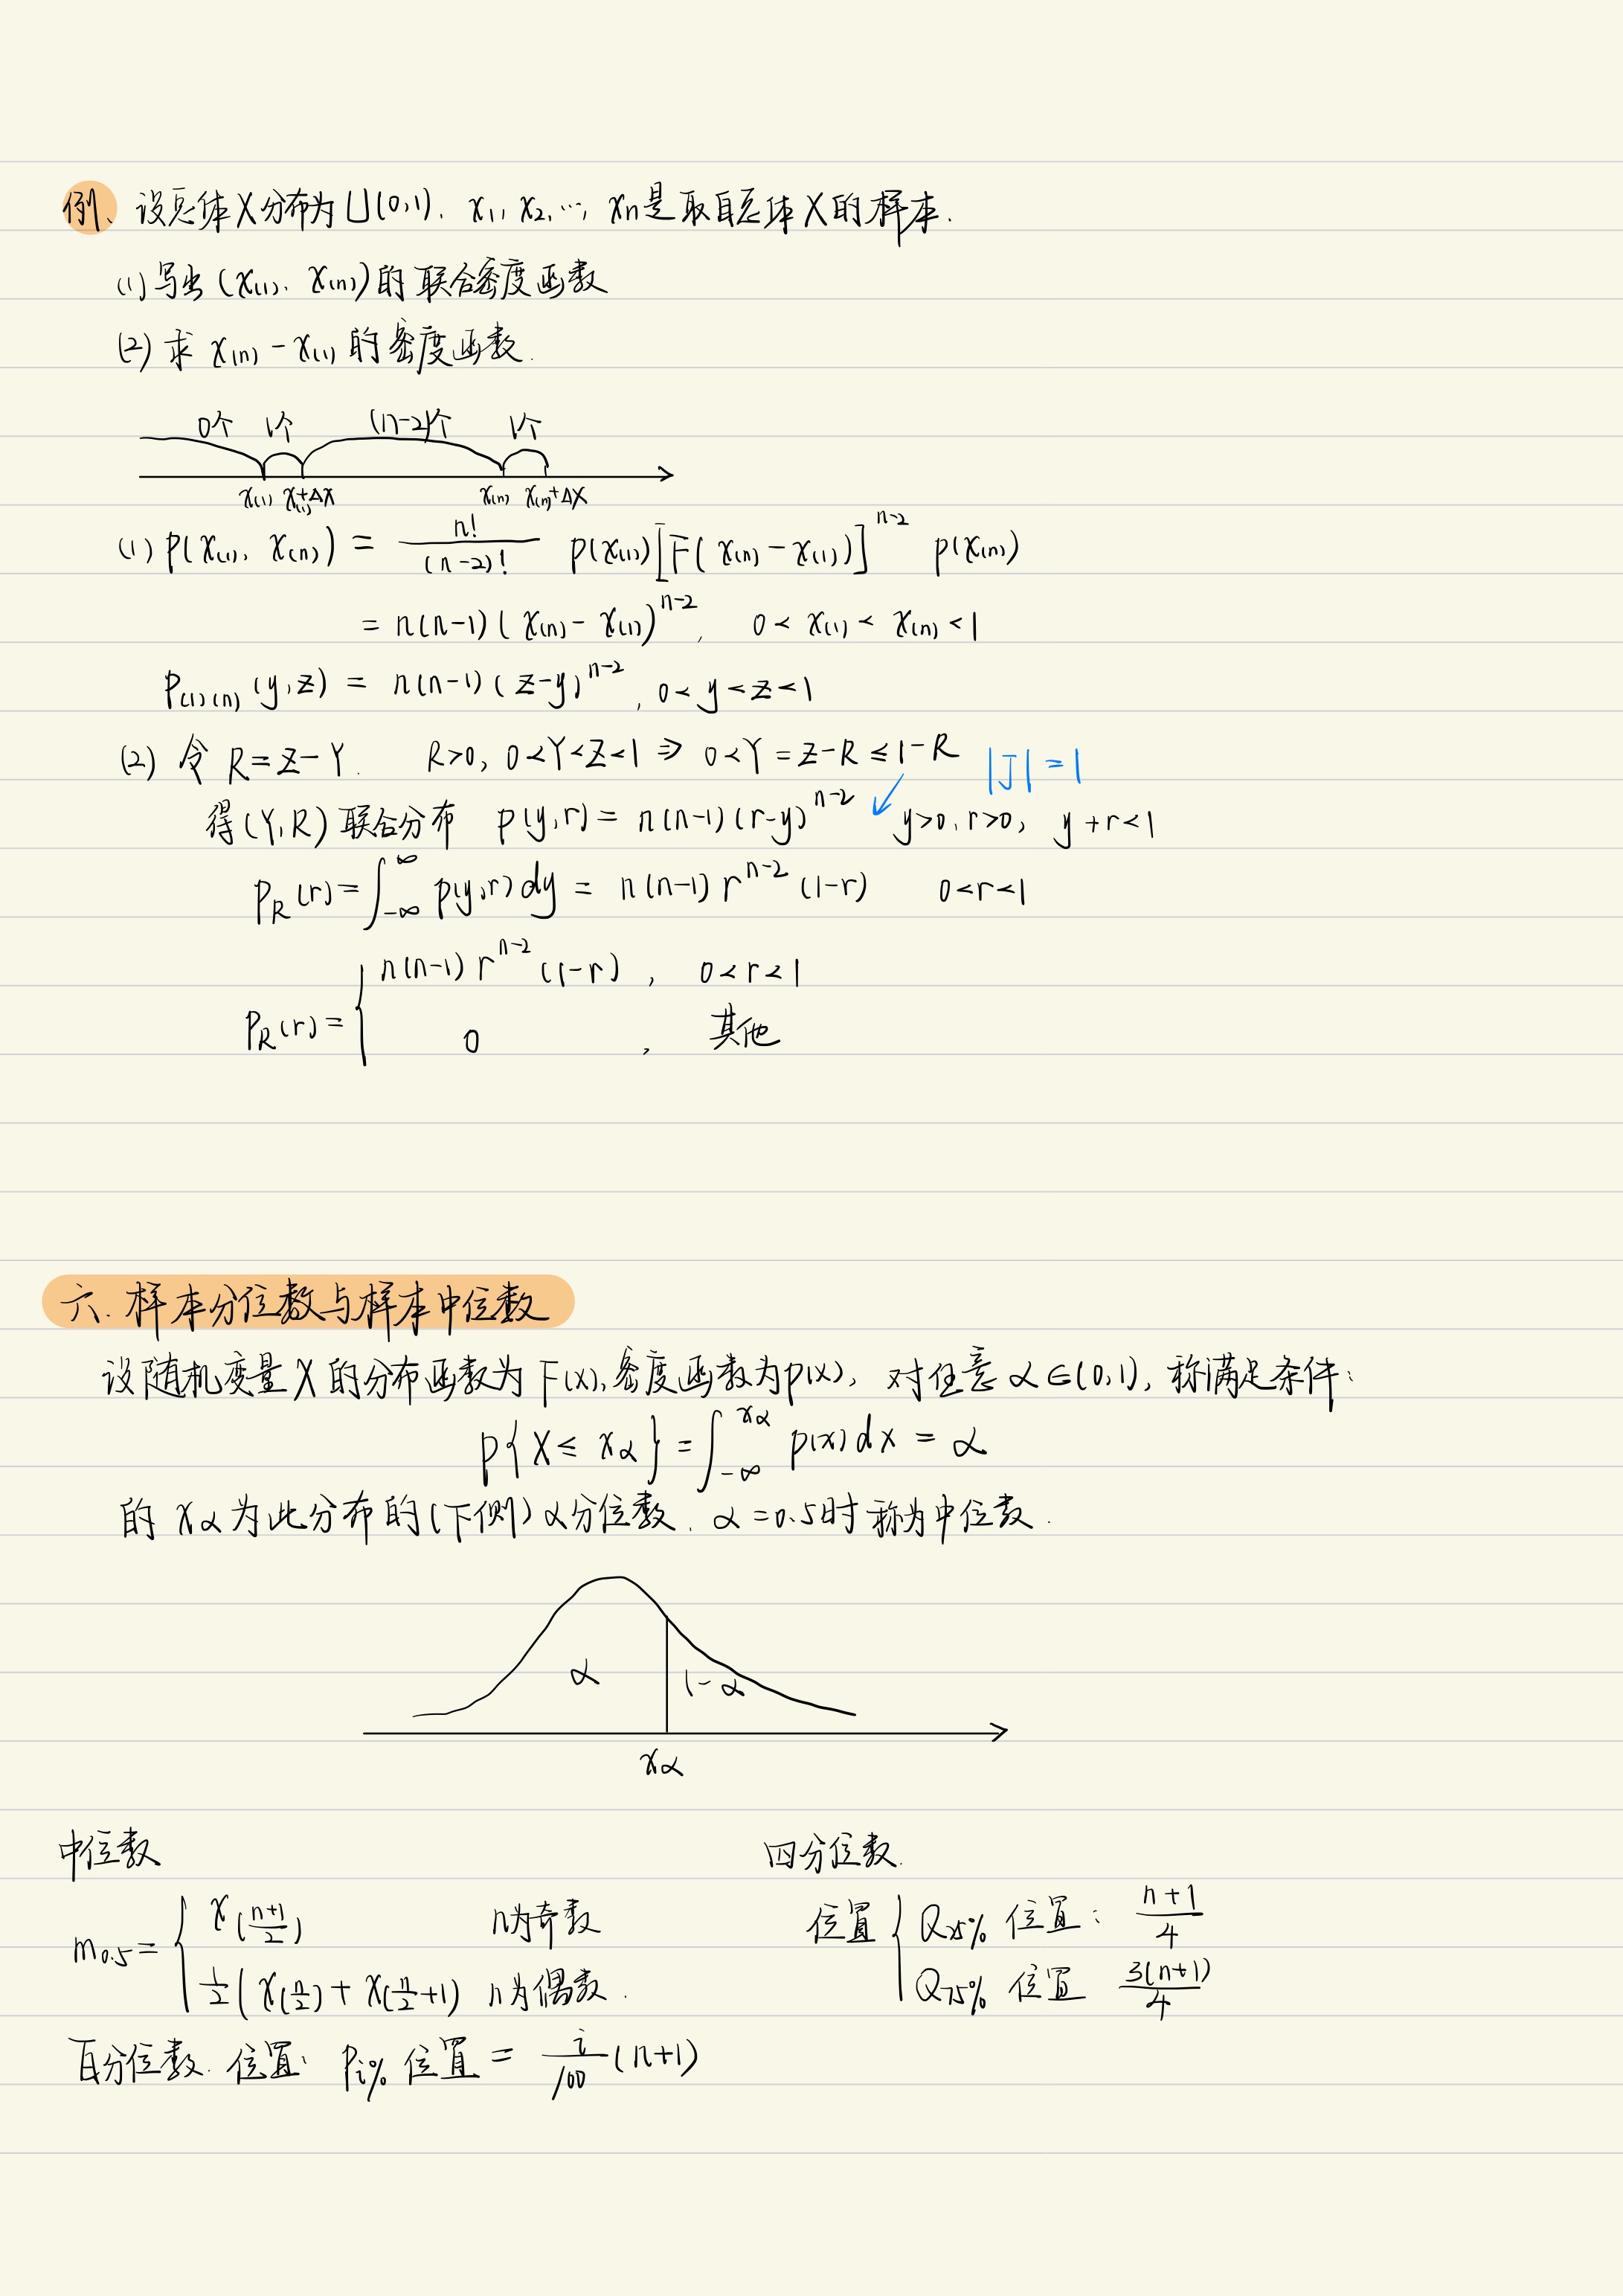 例、设总体X分布为U(0,1). x₁, x₂, …, xₙ是取自总体X的样本.
(1) 写出(x₍₁₎, x₍ₙ₎)的联合密度函数
(2) 求 x₍ₙ₎ - x₍₁₎ 的密度函数.
0个 1个 (n-2)个 1个
x₍₁₎ x₍₁₎+Δx x₍ₙ₎ x₍ₙ₎+Δx
(1) p(x₍₁₎, x₍ₙ₎) = n!/(n-2)! p(x₍₁₎)[F(x₍ₙ₎ - x₍₁₎)]^{n-2} p(x₍ₙ₎)
= n(n-1)(x₍ₙ₎ - x₍₁₎)^{n-2}, 0 < x₍₁₎ < x₍ₙ₎ < 1
p₍₁₎₍ₙ₎(y,z) = n(n-1)(z-y)^{n-2}, 0 < y < z < 1
(2) 令 R = Z - Y. R>0, 0<Y<Z<1 ⇒ 0<Y = Z-R ≤ 1-R |J| = 1
得(Y,R)联合分布 p(y,r) = n(n-1)(r-y)^{n-2} y>0, r>0, y+r<1
p_R(r) = ∫_{-∞}^{∞} p(y,r)dy = n(n-1) r^{n-2} (1-r) 0<r<1
p_R(r) = { n(n-1) r^{n-2} (1-r), 0<r<1
0 , 其他
六. 样本分位数与样本中位数
设随机变量X的分布函数为F(x), 密度函数为p(x), 对任意 α∈(0,1), 称满足条件:
p{X ≤ x_α} = ∫_{-∞}^{x_α} p(x)dx = α
的 x_α 为此分布的(下侧)α分位数. α=0.5时称为中位数.
α 1-α
x_α
中位数 四分位数.
m_{0.5} = { x_{((n+1)/2)} n为奇数
½(x_{(n/2)} + x_{(n/2+1)}) n为偶数.
位置 { Q_{25%} 位置: (n+1)/4
Q_{75%} 位置 3(n+1)/4
百分位数. 位置: P_{i%} 位置 = i/100 (n+1)